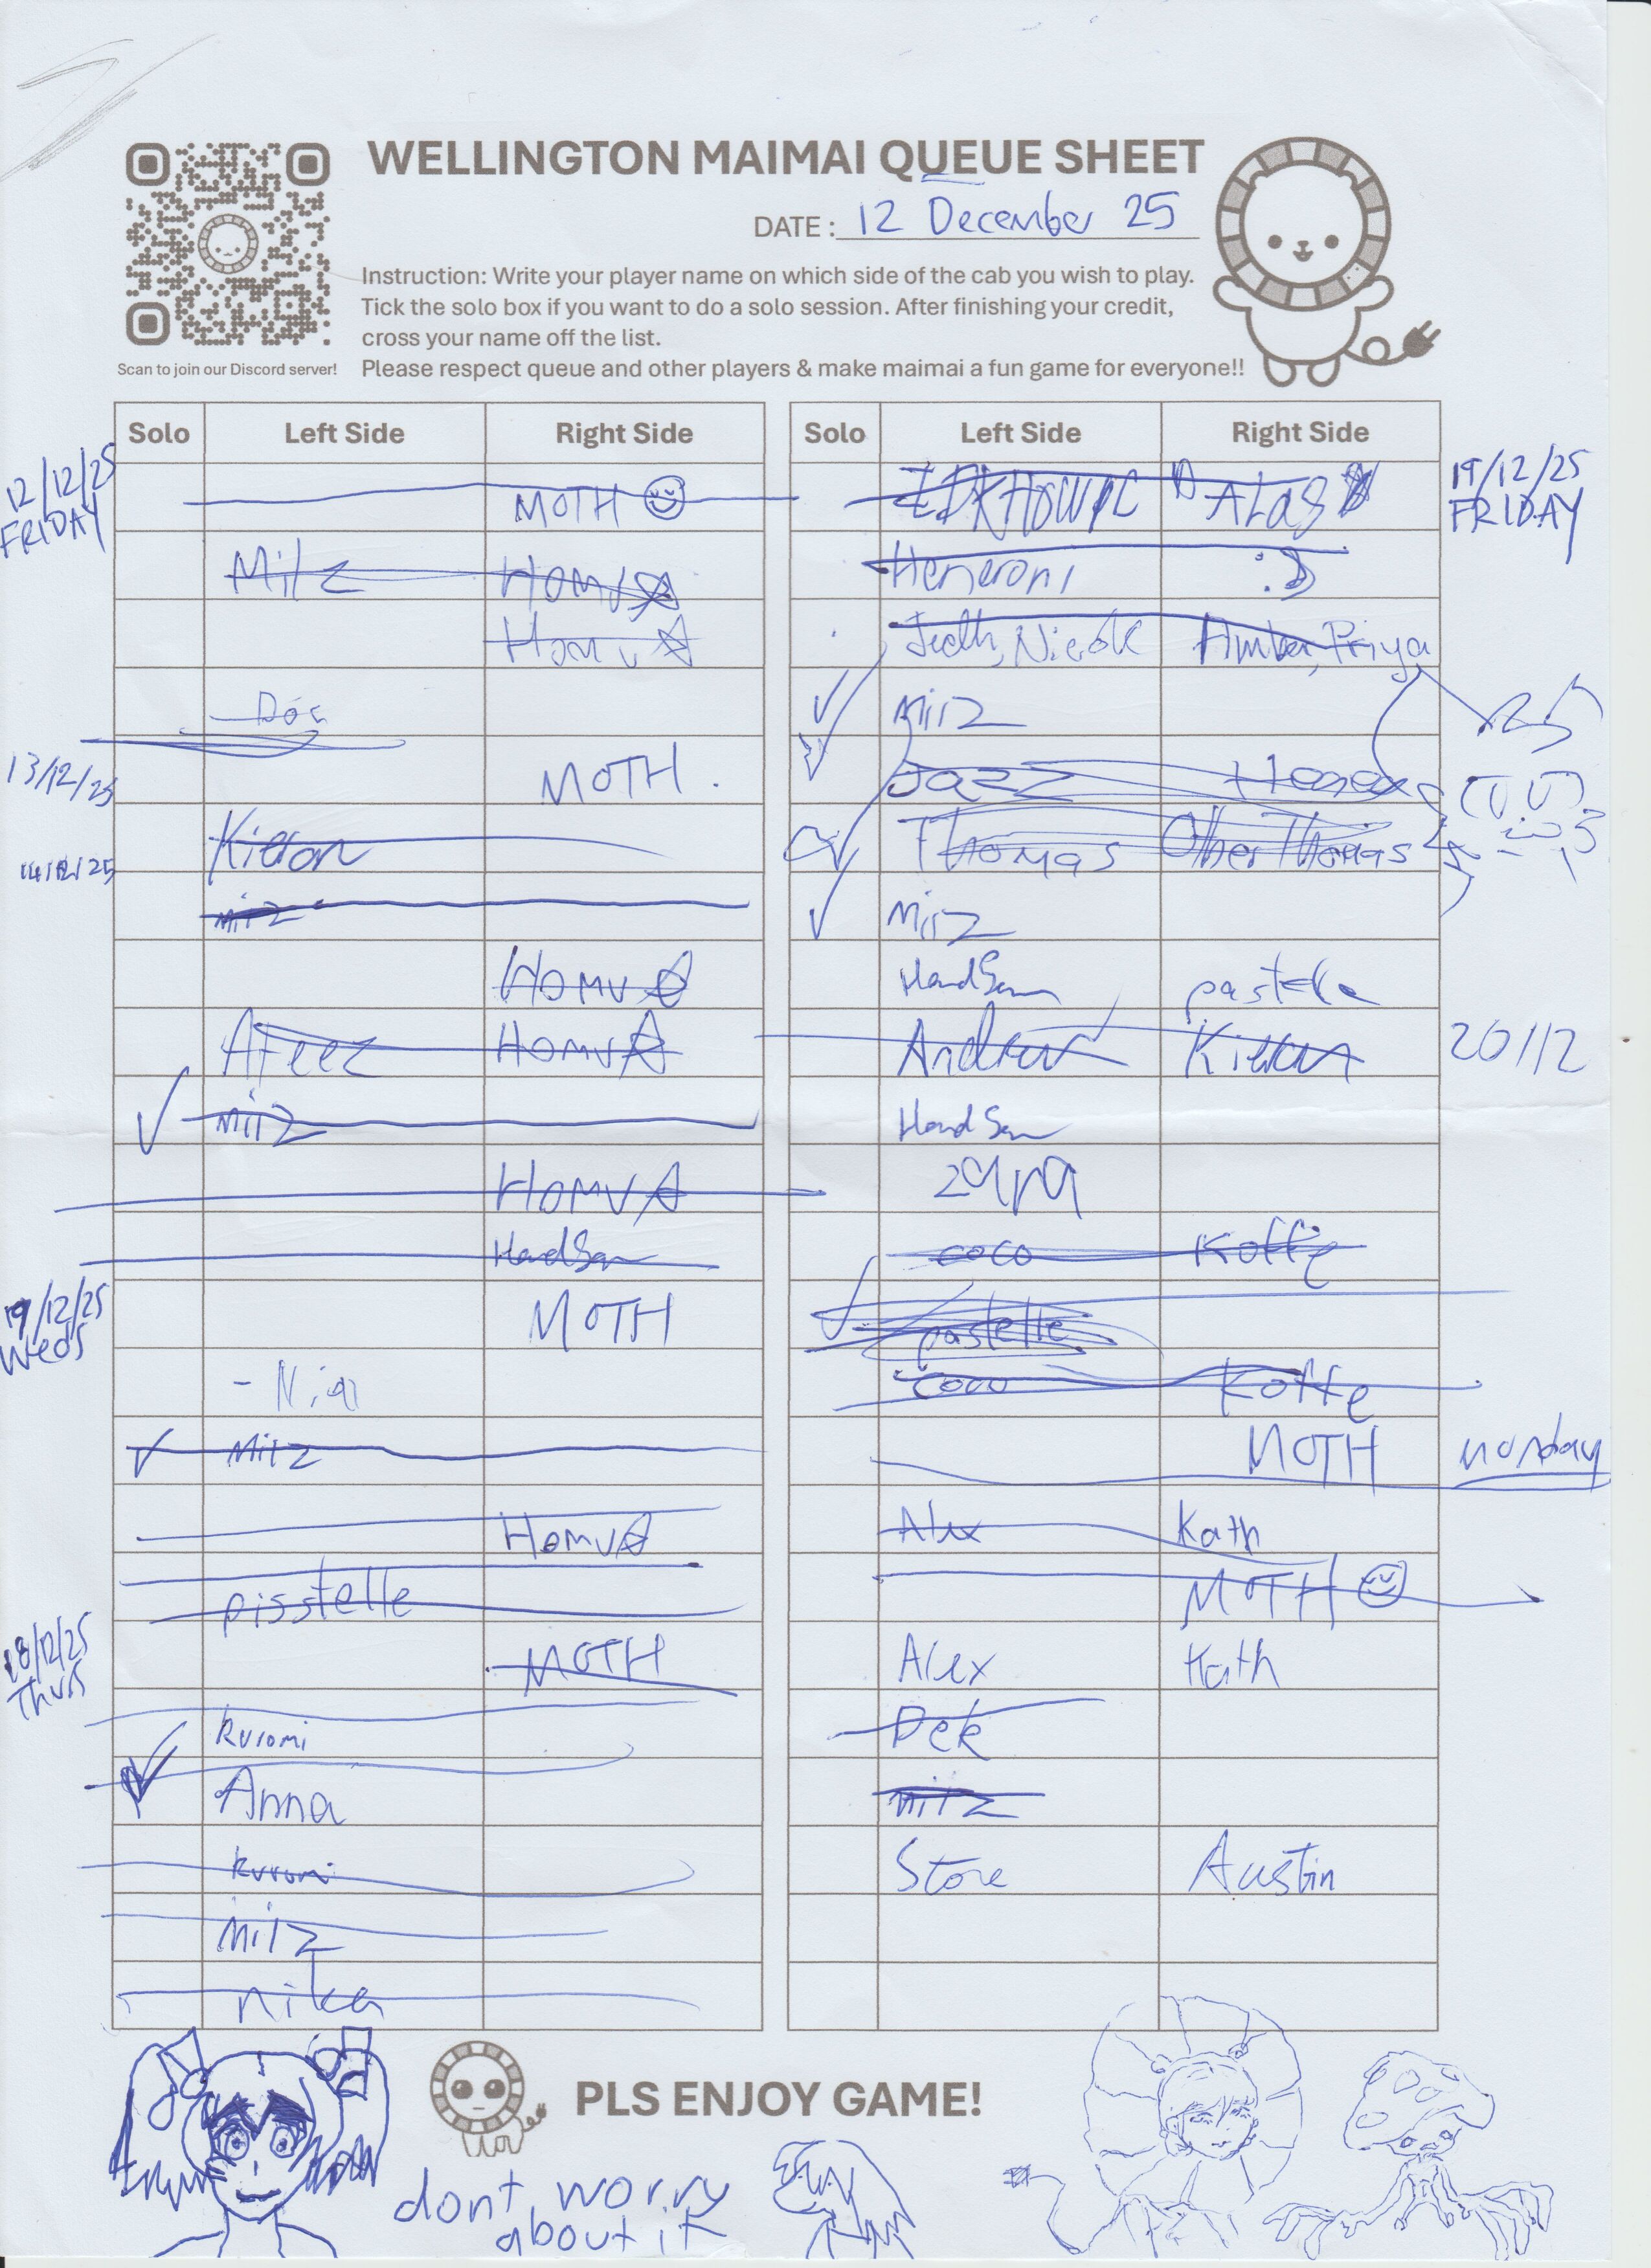 WELLINGTON MAIMAI QUEUE SHEET
DATE : 12 December 25
Instruction: Write your player name on which side of the cab you wish to play.
Tick the solo box if you want to do a solo session. After finishing your credit,
cross your name off the list.
Please respect queue and other players & make maimai a fun game for everyone!!
Scan to join our Discord server!
Solo Left Side Right Side
12/12/25
FRIDAY
MOTH
Milz HomvA
HomvA
13/12/25
MOTH.
14/12/25
Kieran
miiz
HomvA
Afeez HomvA
✓ miiz
HomvA
HandSan
19/12/25
Weds
MOTH
✓ Milz
HomvA
pisstelle
18/12/25
Thurs
MOTH
kuromi
✓ Anna
kuromi
milz
nika
Solo Left Side Right Side
19/12/25
FRIDAY
IDKHOWPL ALAS
Heneroni :D
Nicole Amber, Priya
✓ miiz
Jazz
✓ Thomas Other Thomas
✓ Miiz
HandSan pastelle
Andrew Kieran 20/12
HandSan
zara
coco Koffe
✓ pastelle
coco Koffe
MOTH monday
Alex Kath
MOTH
Alex Kath
Dek
miiz
Stone Austin
PLS ENJOY GAME!
dont worry
about it